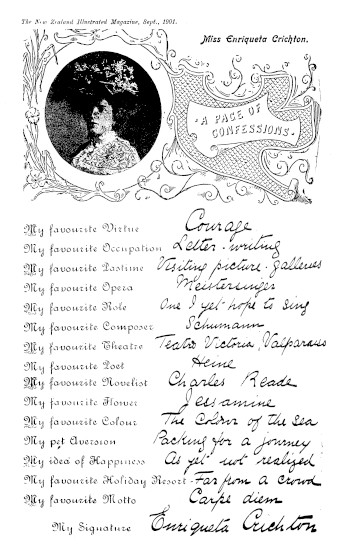 The New Zealand Illustrated Magazine, Sept., 1901.
Miss Enriqueta Crichton.
A PAGE OF
CONFESSIONS.
My favourite Virtue Courage
My favourite Occupation Letter-writing
My favourite Pastime Visiting picture-galleries
My favourite Opera Meistersinger
My favourite Role One I yet hope to sing
My favourite Composer Schumann
My favourite Theatre Teatro Victoria, Valparaiso
My favourite Poet Heine
My favourite Novelist Charles Reade
My favourite Flower Jessamine
My favourite Colour The Colour of the Sea
My pet Aversion Packing for a journey
My idea of Happiness As yet not realized
My favourite Holiday Resort - Far from a crowd
My favourite Motto Carpe diem
My Signature Enriqueta Crichton